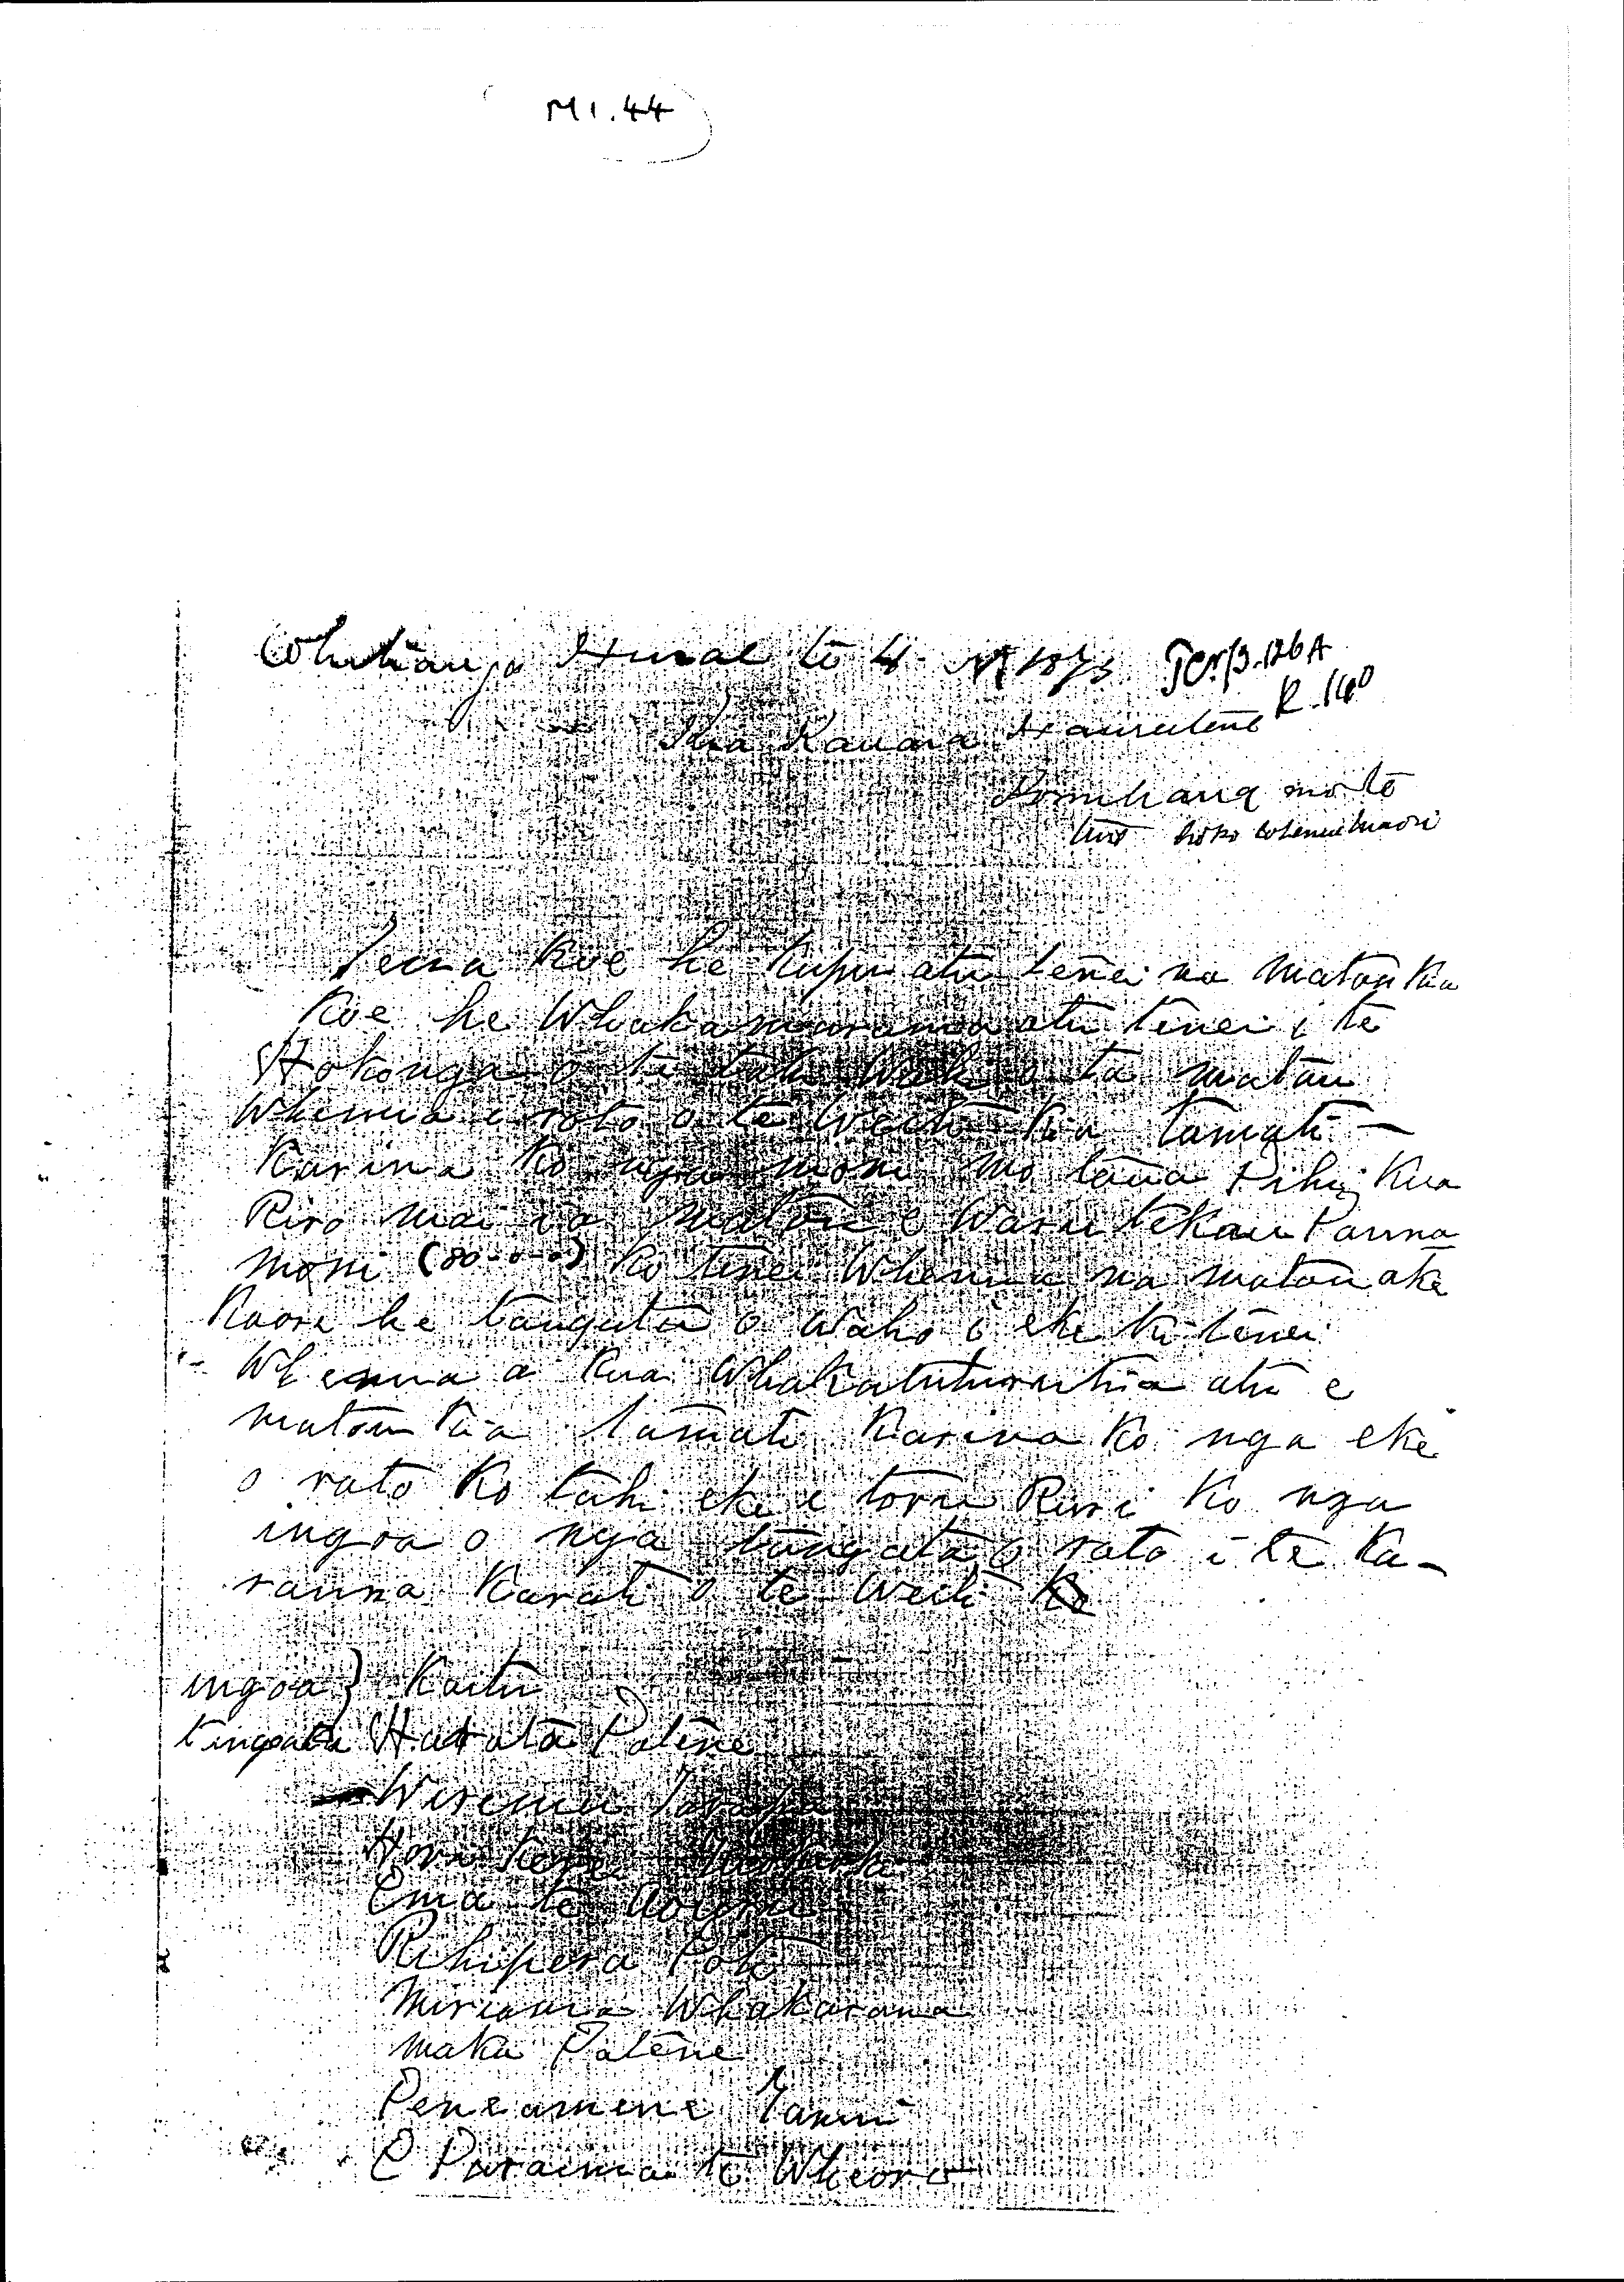 M1.44
Whitianga Hurae te 4 1873
R.140
Kia Kawana Haurutene
mo te
hoko whenua maori
Tena Koe he Kupu atu tenei na matou kia
koe he Whakamarama atu tenei i te
Hokonga o te tahi Wahi o ta matou
Whenua i roto o te Weiti kia tamati -
Karina ko nga moni mo tana Pihi kua
Riro mai ia matou e Waru tekau Pauna
moni (80-0-0) ko tenei Whenua na matou ake
Kaore he tangata o Waho i eke ki tenei
Whenua a kua Whakatuturutia atu e
matou kia tamati Karina ko nga eke
o roto ko tahi eke e toru Ruri ko nga
ingoa o nga tangata o roto i te Ka-
rauna Karati o te Weiti
ingoa } Kaitu
tingata Hutata Patene
Wiremu
Hori Kerei
Ema te
Rihipera Poti
Miriama Whakarana
maka Patene
Peneamene Tanui
E Paraima te Wheoro